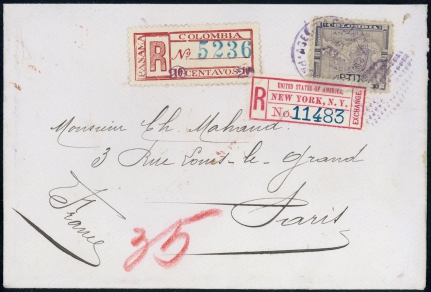 COLOMBIA
PANAMA
R
No. 5236
10 CENTAVOS 10
COLOMBIA
UNITED STATES OF AMERICA.
R
NEW YORK, N. Y.
EXCHANGE.
No. 11483
Monsieur Ch.
3 Rue Louis-le-Grand
Paris
France
35